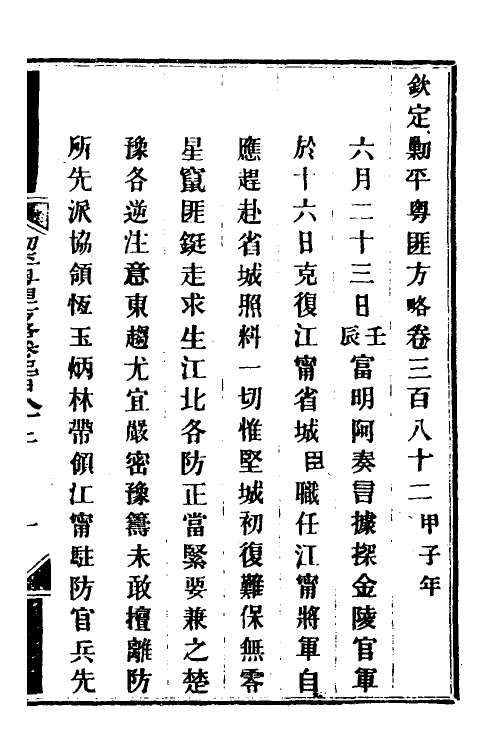 欽定勦平粵匪方略卷三百八十二 甲子年
六月二十三日壬辰富明阿奏言據探金陵官軍
於十六日克復江甯省城臣職任江甯將軍自
應趕赴省城照料一切惟堅城初復難保無零
星竄匪鋌走求生江北各防正當緊要兼之楚
豫各逆注意東趨尤宜嚴密豫籌未敢擅離防
所先派協領恆玉炳林帶領江甯駐防官兵先